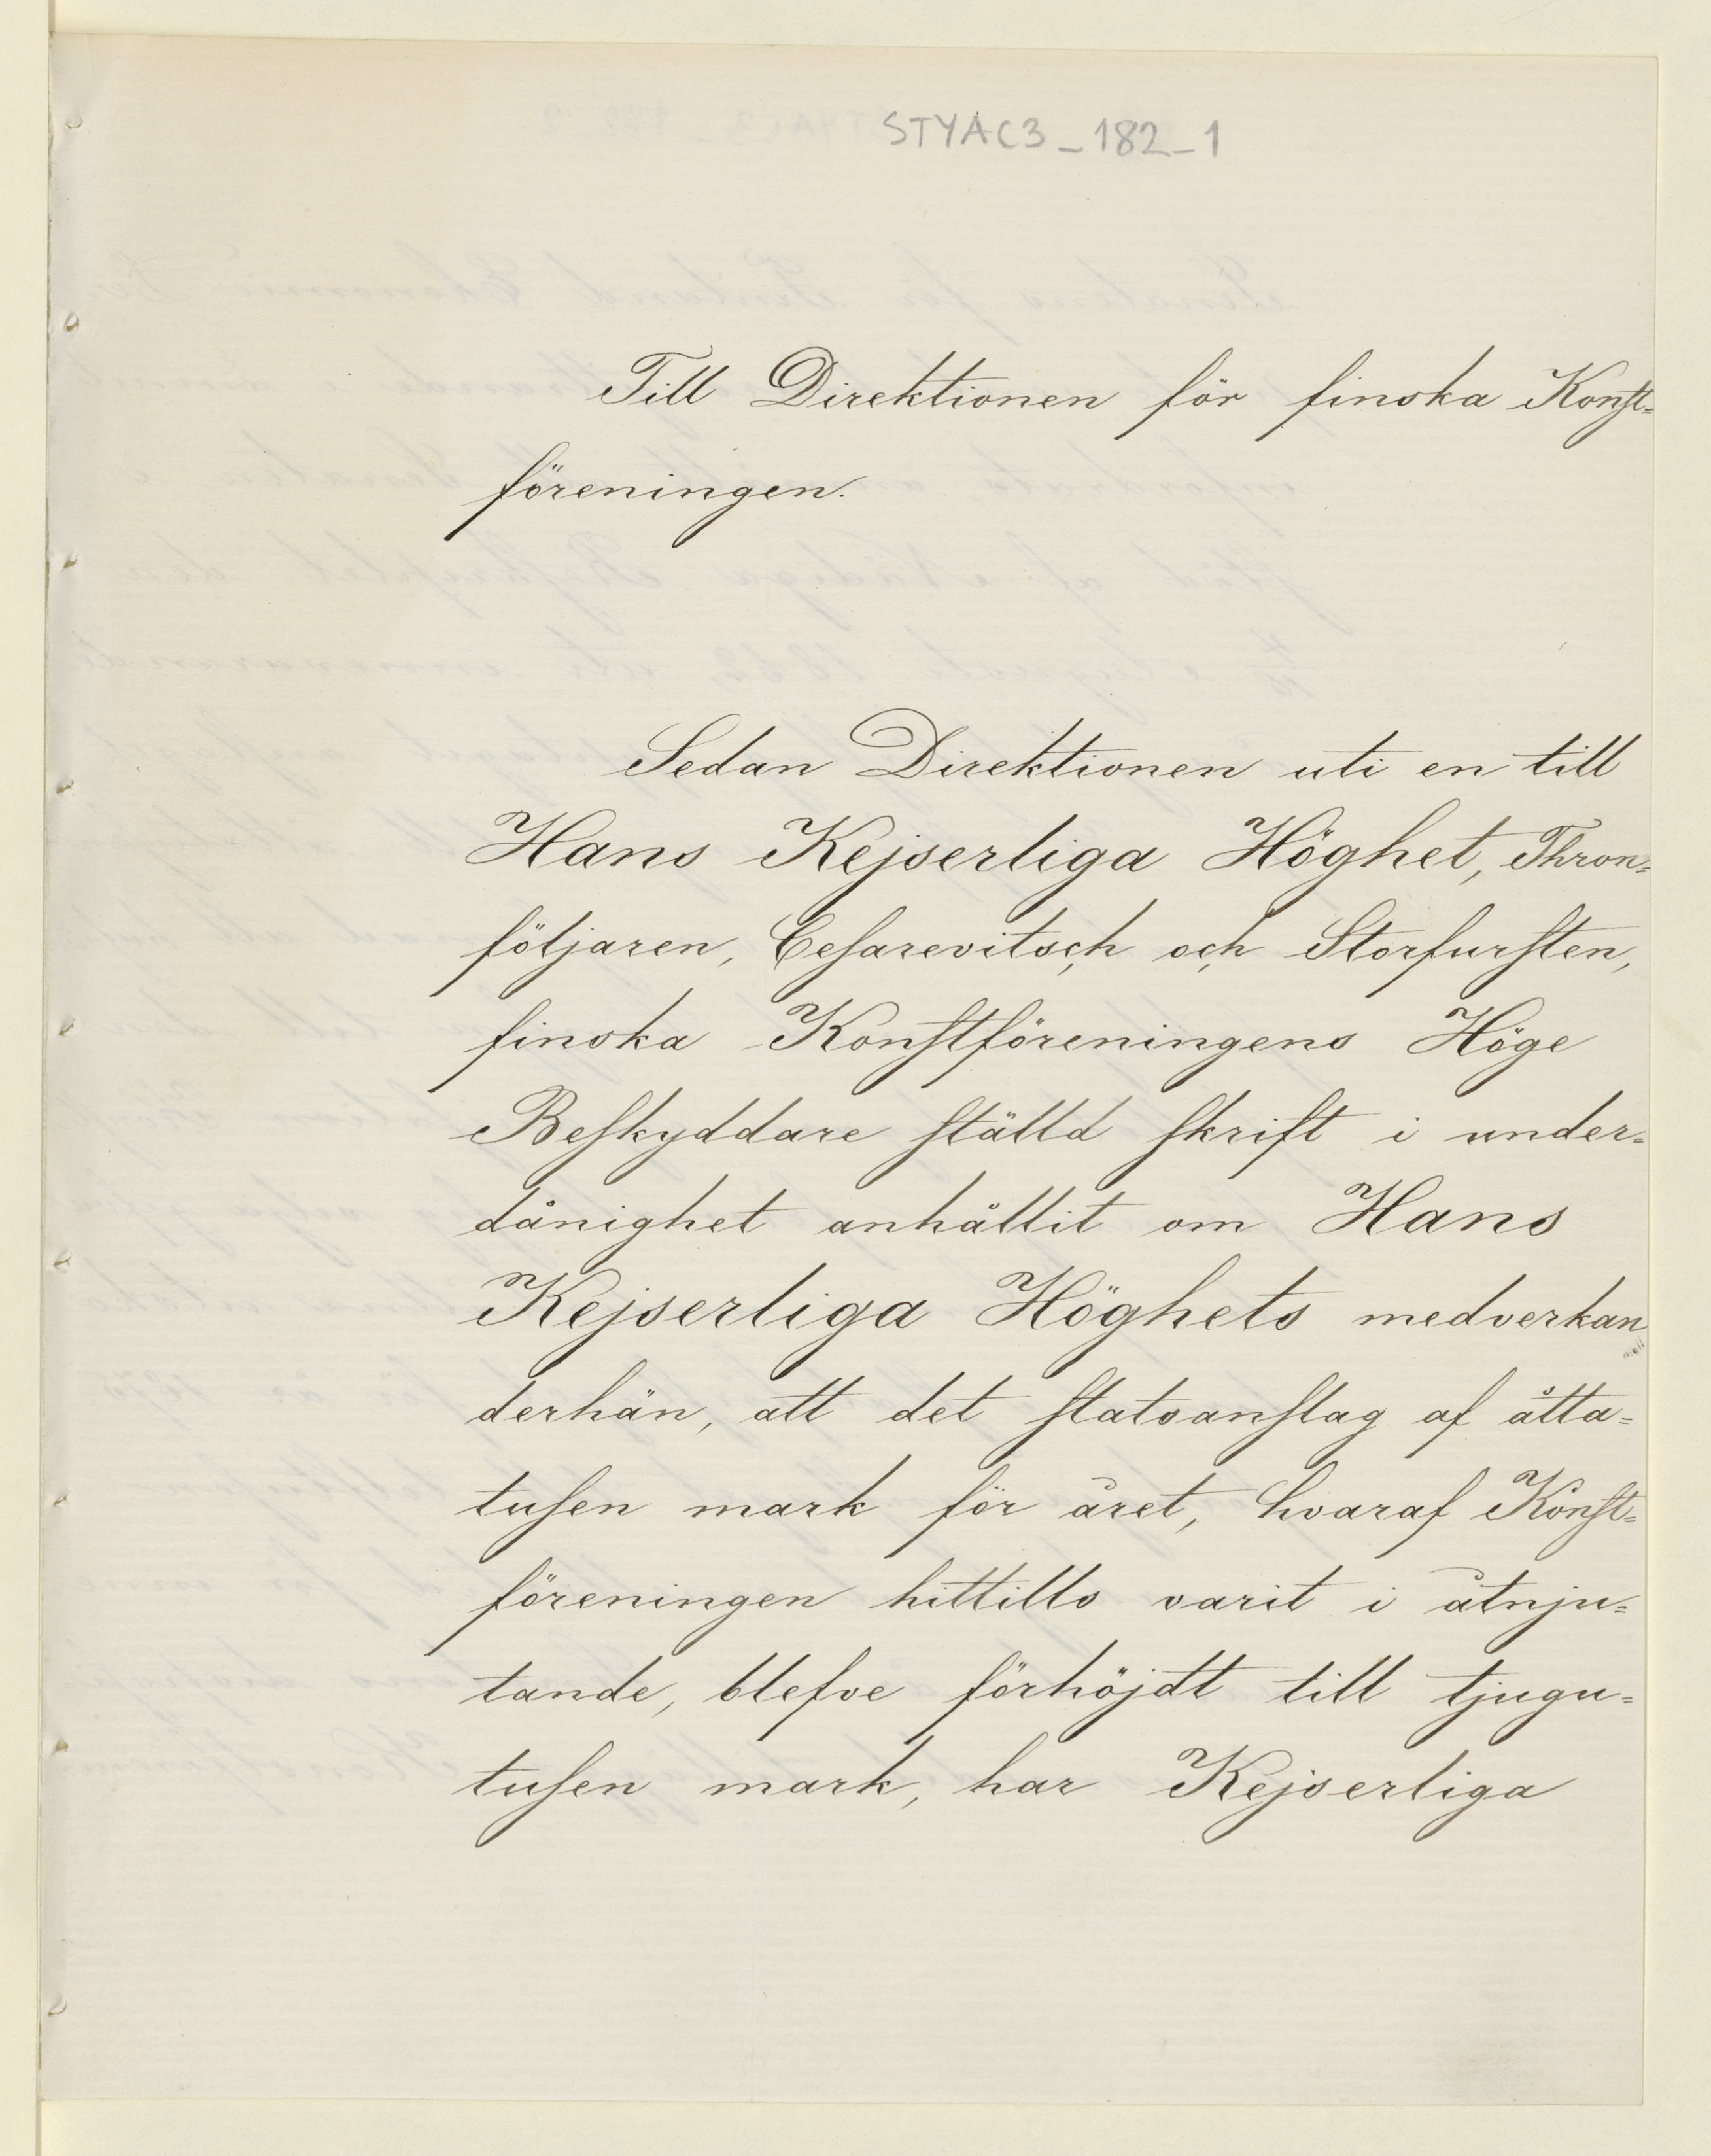 STYAC3_182_1
Till Direktionen för finska Konst=
föreningen.
Sedan Direktionen uti en till
Hans Kejserliga Höghet, Thron=
följaren, Cesarevitsch och Storfursten,
finska Konstföreningens Höge
Beskyddare ställd skrift i under=
dånighet anhållit om Hans
Kejserliga Höghets medverkan
derhän, att det statsanslag af åtta=
tusen mark för året, hvaraf Konst=
föreningen hittills varit i åtnju=
tande, blefve förhöjdt till tjugu=
tusen mark, har Kejserliga